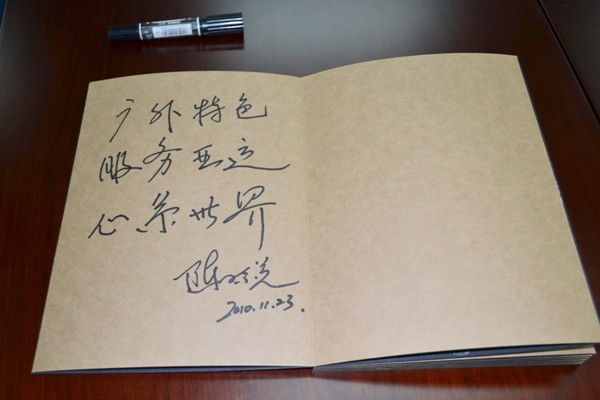 户外特色
服务亚运
心系世界
2010.11.23.